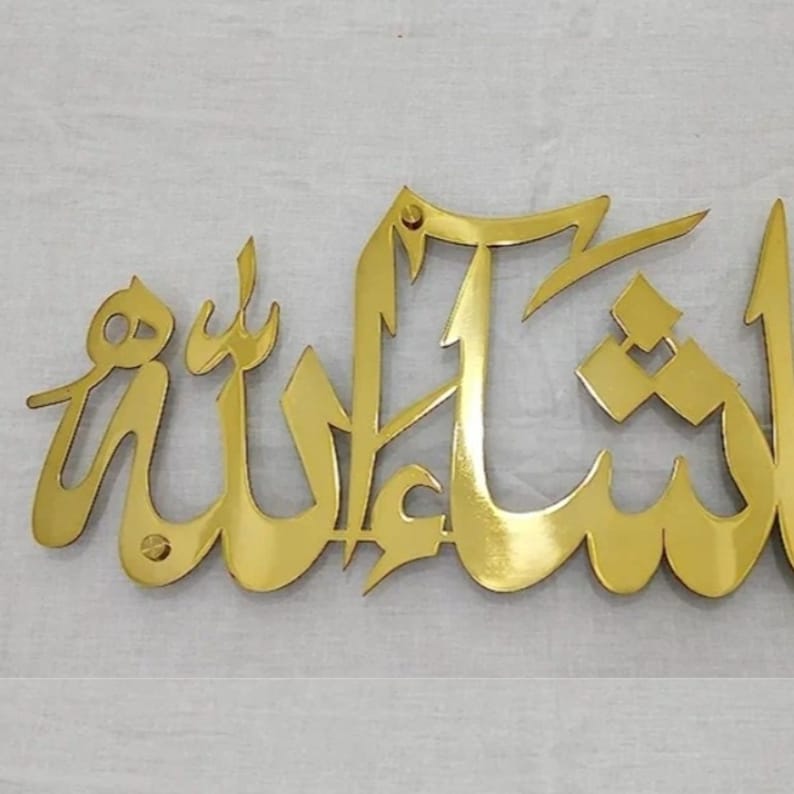 شاء الله